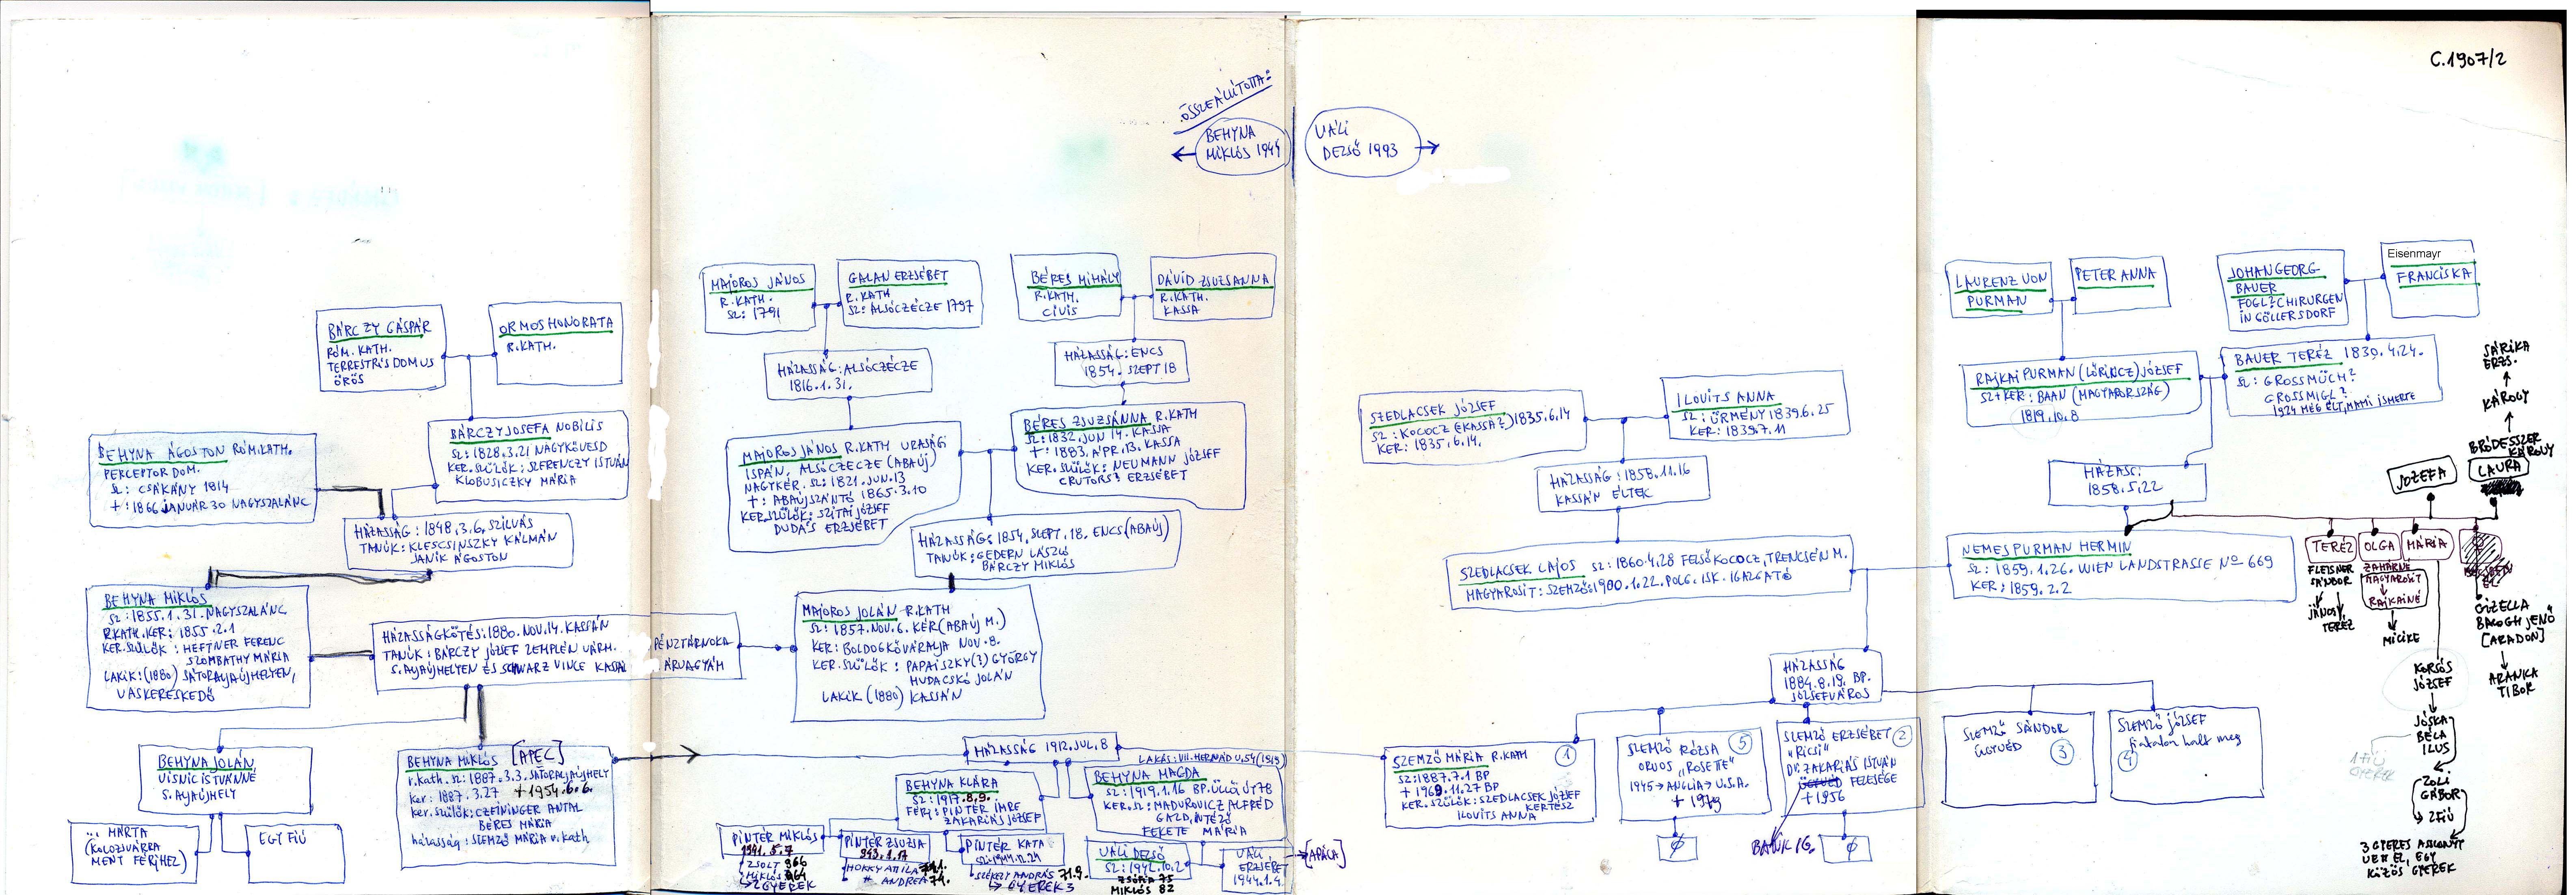 C.1907/2
ÖSSZEÁLLÍTOTTA:
BEHYNA
MIKLÓS 1944
VÁLI
DEZSŐ 1993
BÁRCZY GÁSPÁR
RÓM. KATH.
TERRESTRIS DOMUS
ŐRÖS
ORMOS HONORATA
R.KATH.
MAJOROS JÁNOS
R.KATH.
SZ: 1791
GALAN ERZSÉBET
R.KATH
SZ: ALSÓCZÉCZE 1797
BÉRES MIHÁLY
R.KATH.
CIVIS
DÁVID ZSUZSANNA
R.KATH.
KASSA
LAURENZ VON
PURMAN
PETER ANNA
JOHAN GEORG
BAUER
FOGL? CHIRURGEN
IN GÖLLERSDORF
Eisenmayr
FRANCISKA
HÁZASSÁG: ALSÓCZÉCZE
1816.1.31.
HÁZASSÁG: ENCS
1854. SZEPT 18
RAJKAI PURMAN (LŐRINCZ) JÓZSEF
SZ+KER: BAAN (MAGYARORSZÁG)
1819.10.8
BAUER TERÉZ 1839.4.24.
SZ: GROSSMÜCH?
GROSSMIGL?
1924 MÉG ÉLT, MAMI ISMERTE
SÁRIKA
ERZS.
KÁROGY
BRÓDESSZER
KÁROLY
LAURA
JOZEFA
BEHYNA ÁGOSTON RÓM.KATH.
PERCEPTOR DOM.
SZ: CSÁKÁNY 1814
+: 1866 JANUÁR 30 NAGYSZALÁNC
BÁRCZY JOSEFA NOBILIS
SZ: 1828.3.21 NAGYKÖVESD
KER.SZÜLŐK: SZERENCZY ISTVÁN
KLOBUSICZKY MÁRIA
HÁZASSÁG: 1848.3.6, SZILVÁS
TANÚK: KLESCSINSZKY KÁLMÁN
JANIK ÁGOSTON
MAJOROS JÁNOS R.KATH URASÁGI
ISPÁN, ALSÓCZECZE (ABAÚJ)
NAGYKÉR. SZ: 1821.JUN.13
+: ABAÚJSZÁNTÓ 1865.3.10
KER.SZÜLŐK: SZITAI JÓZSEF
DUDÁS ERZSÉBET
BÉRES ZSUZSÁNNA R.KATH
SZ: 1832. JUN 14. KASSA
+: 1883. APR. 13. KASSA
KER. SZÜLŐK: NEUMANN JÓZSEF
CRUTORS? ERZSÉBET
HÁZASSÁG: 1854. SZEPT. 18. ENCS (ABAÚJ)
TANÚK: GEDERN LÁSZLÓ
BÁRCZY MIKLÓS
SZEDLACSEK JÓZSEF 1835.6.14
SZ: KOCOCZ (KASSA?)
KER: 1835.6.14.
ILOVITS ANNA
SZ: ÜRMÉNY 1839.6.25
KER: 1839.7.11
HÁZASSÁG: 1858.11.16
KASSÁN ÉLTEK
HÁZASS:
1858.5.22
SZEDLACSEK LAJOS SZ: 1860.4.28 FELSŐKOCOCZ, TRENCSÉN M.
MAGYAROSÍT: SZEMZŐ: 1900.1.22. POLG. ISK. IGAZGATÓ
NEMES PURMAN HERMIN
SZ: 1859.1.26. WIEN LANDSTRASSE No 669
KER: 1859.2.2
TERÉZ
FLEISNER
SÁNDOR
JÁNOS
TERÉZ
OLGA
ZAHÁRNÉ
MAGYAROSÍT
RAJKAINÉ
MICIKE
MÁRIA
KORSÓS
JÓZSEF
JÓSKA
BÉLA
ILUS
1 FIÚ
GYEREK
ZOLI
GÁBOR
2 FIÚ
3 GYERES ASSZONYT
VETT EL, EGY
KÖZÖS GYEREK
GIZELLA
BALOGH JENŐ
[ARADON]
ARANKA
TIBOR
BEHYNA MIKLÓS
SZ: 1855.1.31. NAGYSZALÁNC
R.KATH. KER: 1855.2.1
KER. SZÜLŐK: HEFTNER FERENC
SZOMBATHY MÁRIA
LAKIK: (1880) SÁTORALJAÚJHELYEN,
VASKERESKEDŐ
HÁZASSÁGKÖTÉS: 1880. NOV. 14. KASSÁN
TANÚK: BÁRCZY JÓZSEF ZEMPLÉN VÁRM. PÉNZTÁRNOKA
S.AUJHELYEN ÉS SCHWARZ VINCE KASSAI ÁRVAGYÁM
MAJOROS JOLÁN R.KATH
SZ: 1857. NOV. 6. KÉR (ABAÚJ M.)
KER: BOLDOGKŐVÁRALJA NOV. 8.
KER. SZÜLŐK: PAPAISZKY(?) GYÖRGY
HUDACSKÓ JOLÁN
LAKIK (1880) KASSÁN
HÁZASSÁG
1884.8.19. BP.
JÓZSEFVÁROS
BEHYNA JOLÁN
VISNIC ISTVÁNNÉ
S.AUJHELY
MÁRTA
(KOLOZSVÁRRA
MENT FÉRJHEZ)
EGY FIÚ
BEHYNA MIKLÓS [APEC]
r.kath. SZ: 1887.3.3. SÁTORALJAÚJHELY
ker: 1887.3.27 +1954.6.6.
ker. szülők: CZEININGER ANTAL
BÉRES MÁRIA
házasság: SZEMZŐ MÁRIA r.kath
HÁZASSÁG 1912. JUL. 8
LAKÁS: VII. HERNÁD U. 54 (1919)
BEHYNA KLÁRA
SZ: 1917.8.9.
FÉRJ: PINTÉR IMRE
ZAKARIÁS JÓZSEF
BEHYNA MAGDA
SZ: 1919.1.16 BP. ÜLLŐI ÚT 78
KER.SZ: MADUROVICZ ALFRÉD
GAZD. INTÉZŐ
FEKETE MÁRIA
PINTÉR MIKLÓS
1941.5.7
ZSOLT 966
MIKLÓS 964
2 GYEREK
PINTÉR ZSUZSA
943.1.17
HORKY ATTILA
ANDREA 74.
PINTÉR KATA
SZ: 1944.12.24
SZÉKELY ANDRÁS 71.9.
GYEREK 3
VÁLI DEZSŐ
SZ: 1942.10.2
ZSÓFIA 75
MIKLÓS 82
VÁLI
ERZSÉBET
1944.1.4.
[APÁCA]
SZEMZŐ MÁRIA R.KATH 1
SZ: 1887.7.1 BP
+ 1969.11.27 BP
KER. SZÜLŐK: SZEDLACSEK JÓZSEF
KERTÉSZ
ILOVITS ANNA
SZEMZŐ RÓZSA 5
ORVOS "ROSETTE"
1945 → ANGLIA → U.S.A.
+ 1979
Ø
SZEMZŐ ERZSÉBET 2
"Ricsi"
DR. ZAKARIÁS ISTVÁN
ÜGYVÉD FELESÉGE
+ 1956
BANK IG.
Ø
SZEMZŐ SÁNDOR
ÜGYVÉD 3
SZEMZŐ JÓZSEF
fiatalon halt meg
4